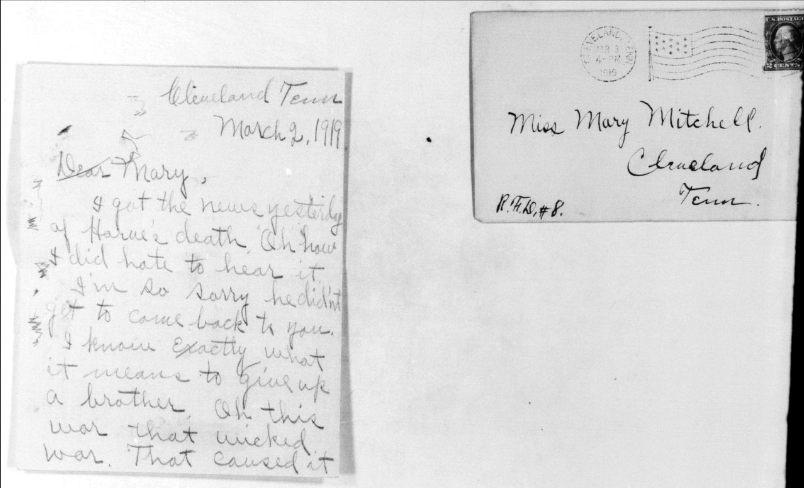 Cleveland Tenn
March 2, 1919
Dear Mary,
I got the news yesterdy
of Harve's death. Oh how
I did hate to hear it
I'm so sorry he didn't
get to come back to you.
I know exactly what
it means to give up
a brother. Oh this
war that wicked
war. That caused it
CLEVELAND, TENN.
MAR 3
4 PM
1919
U.S. POSTAGE
2 CENTS 2
Miss Mary Mitchell.
Cleveland
Tenn.
R.F.D. #8.